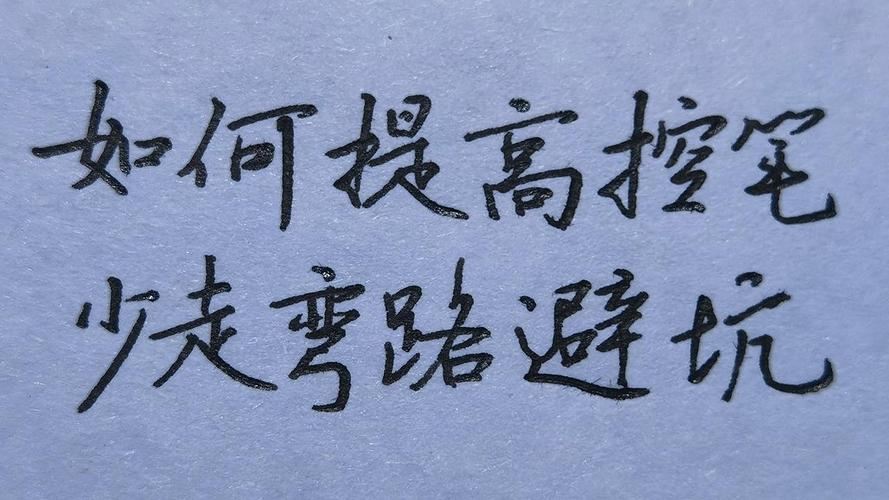 如何提高控笔
少走弯路避坑